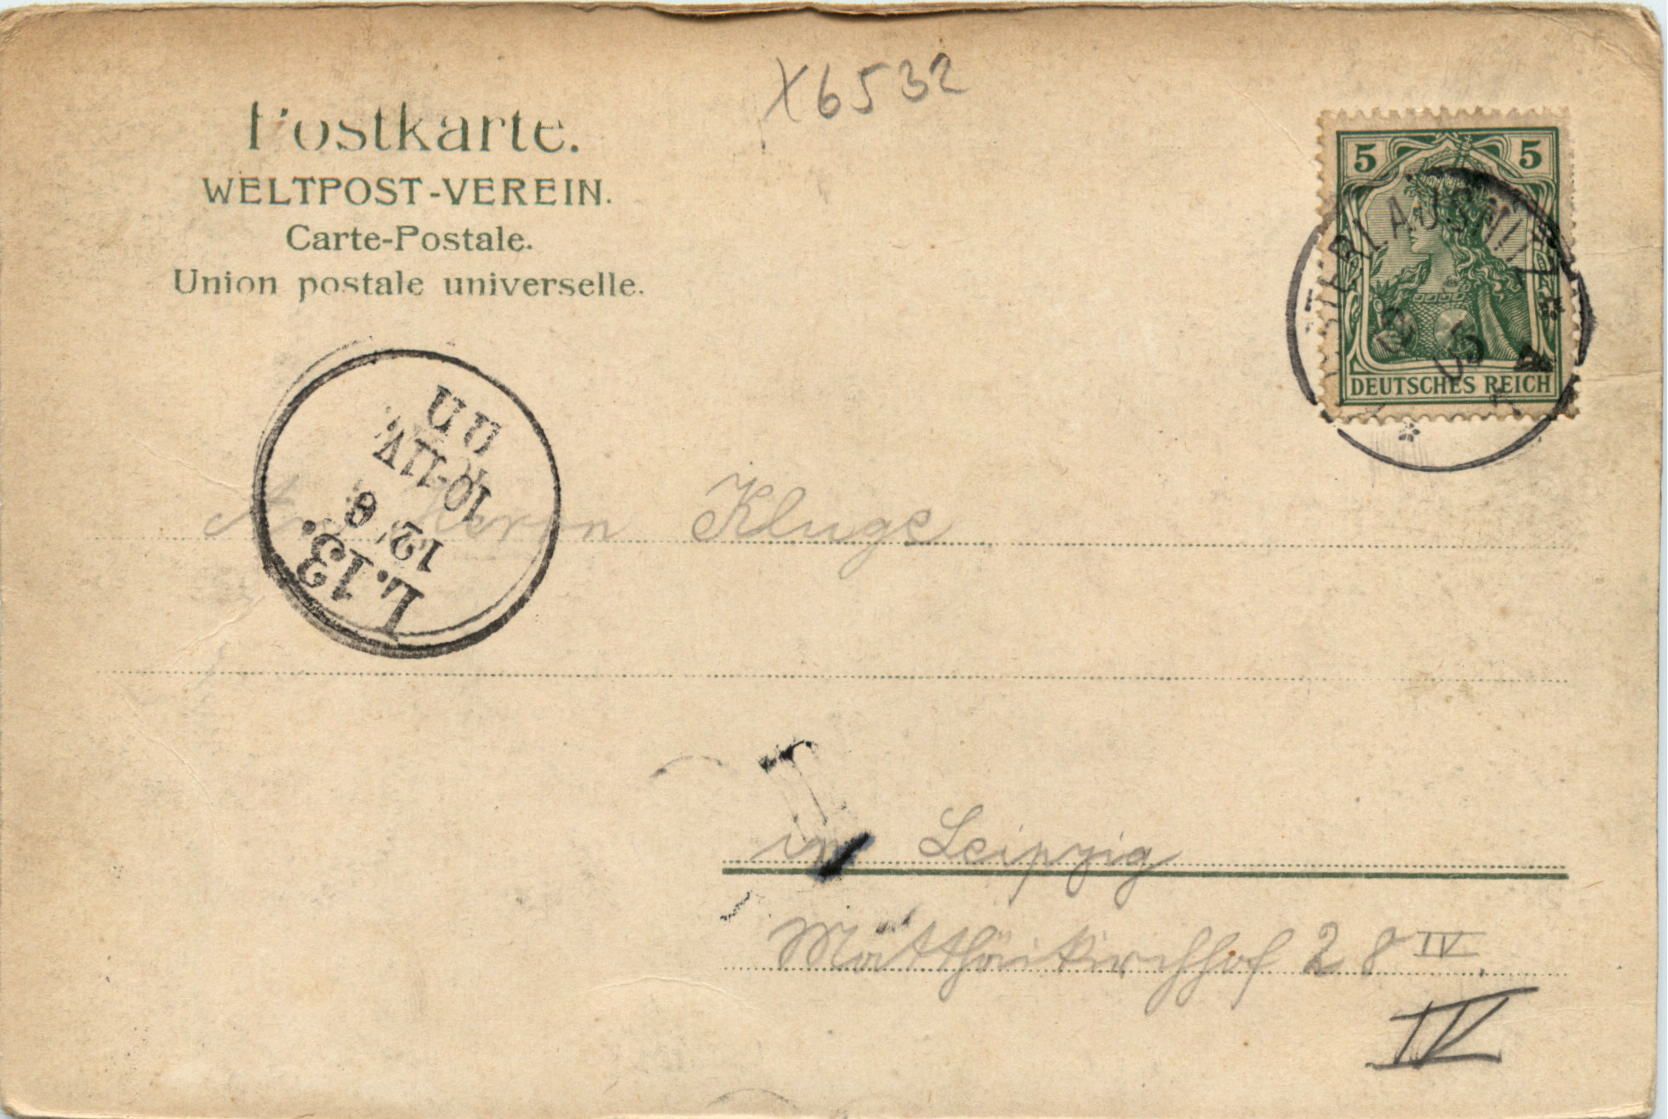 X6532
Postkarte.
WELTPOST-VEREIN.
Carte-Postale.
Union postale universelle.
5 5
DEUTSCHES REICH
L.13.
12/6
10-11V.
An Herrn Kluge
in Leipzig
Matthäikirchhof 28 IV
IV